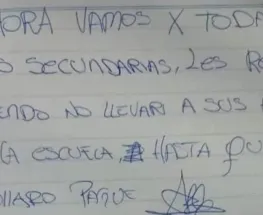 HORA VAMOS X TODA
SECUNDARIAS, LES R
ENDO NO LLEVAR A SUS
LA ESCUELA, HASTA QU
PAGUE